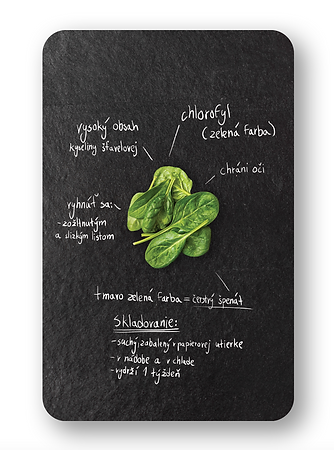 chlorofyl
(zelená farba)
vysoký obsah
kyseliny šťavelovej
chráni oči
vyhnúť sa:
- zožltnutým
a slizkým listom
tmavo zelená farba = čerstvý špenát
Skladovanie:
- suchý, zabalený v papierovej utierke
- v nádobe a v chlade
- vydrží 1 týždeň